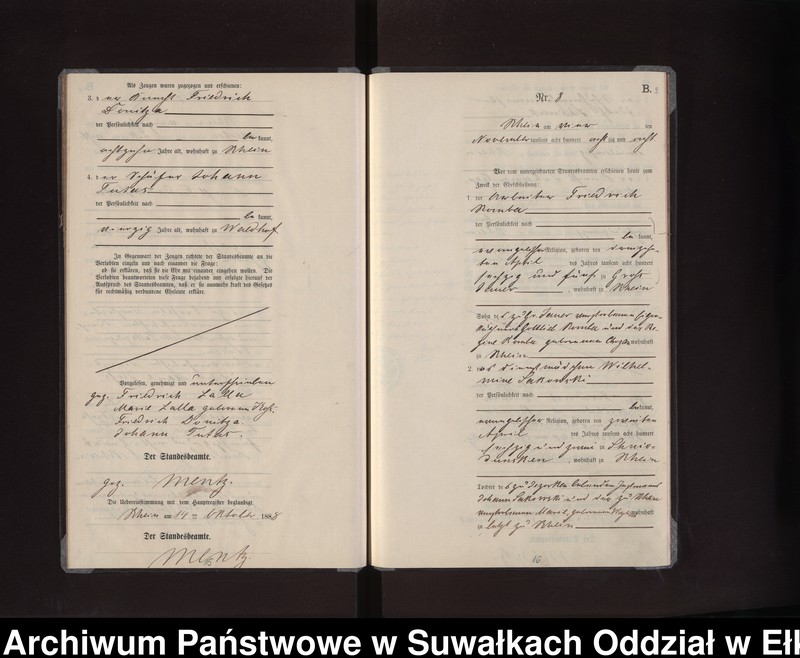 Als Zeugen waren zugezogen und erschienen:
3. der Knecht Friedrich
Donitza
der Persönlichkeit nach
be kannt,
achtzehn Jahre alt, wohnhaft zu Rhein
4. der Schäfer Johann
der Persönlichkeit nach
be kannt,
vierzig Jahre alt, wohnhaft zu Waldhof
In Gegenwart der Zeugen richtete der Standesbeamte an die
Verlobten einzeln und nach einander die Frage:
ob sie erklären, daß sie die Ehe mit einander eingehen wollen. Die
Verlobten beantworteten diese Frage bejahend und erfolgte hierauf der
Ausspruch des Standesbeamten, daß er sie nunmehr kraft des Gesetzes
für rechtmäßig verbundene Eheleute erkläre.
Vorgelesen, genehmigt und unterschrieben
gez. Friedrich Lalla
Marie Lalla geborene
Friedrich Donitza.
Johann
Der Standesbeamte.
gez. Mentz.
Die Uebereinstimmung mit dem Hauptregister beglaubigt.
Rhein am 14 ten Oktober 1888
Der Standesbeamte.
Mentz
B.
Nr. 8
Rhein am vier ten
November tausend acht hundert achtzig und acht
Vor dem unterzeichneten Standesbeamten erschienen heute zum
Zweck der Eheschließung:
1. der Arbeiter Friedrich
Romba
der Persönlichkeit nach
be kannt,
evangelischer Religion, geboren den dreizehn-
ten April des Jahres tausend acht hundert
sechzig und fünf zu Groß
, wohnhaft zu Rhein
Sohn des zu Gr. verstorbenen
Gottlieb Romba und der Re-
gine Romba geborenen wohnhaft
zu Rhein
2. das Dienstmädchen Wilhel-
mine Sakowski
der Persönlichkeit nach
bekannt,
evangelischer Religion, geboren den zweiten
April des Jahres tausend acht hundert
sechzig und zwei zu
, wohnhaft zu Rhein
Tochter des zu
Johann Sakowski und der zu Rhein
verstorbenen Marie, geborenen wohnhaft
zuletzt zu Rhein
16
Archiwum Państwowe w Suwałkach Oddział w Ełk